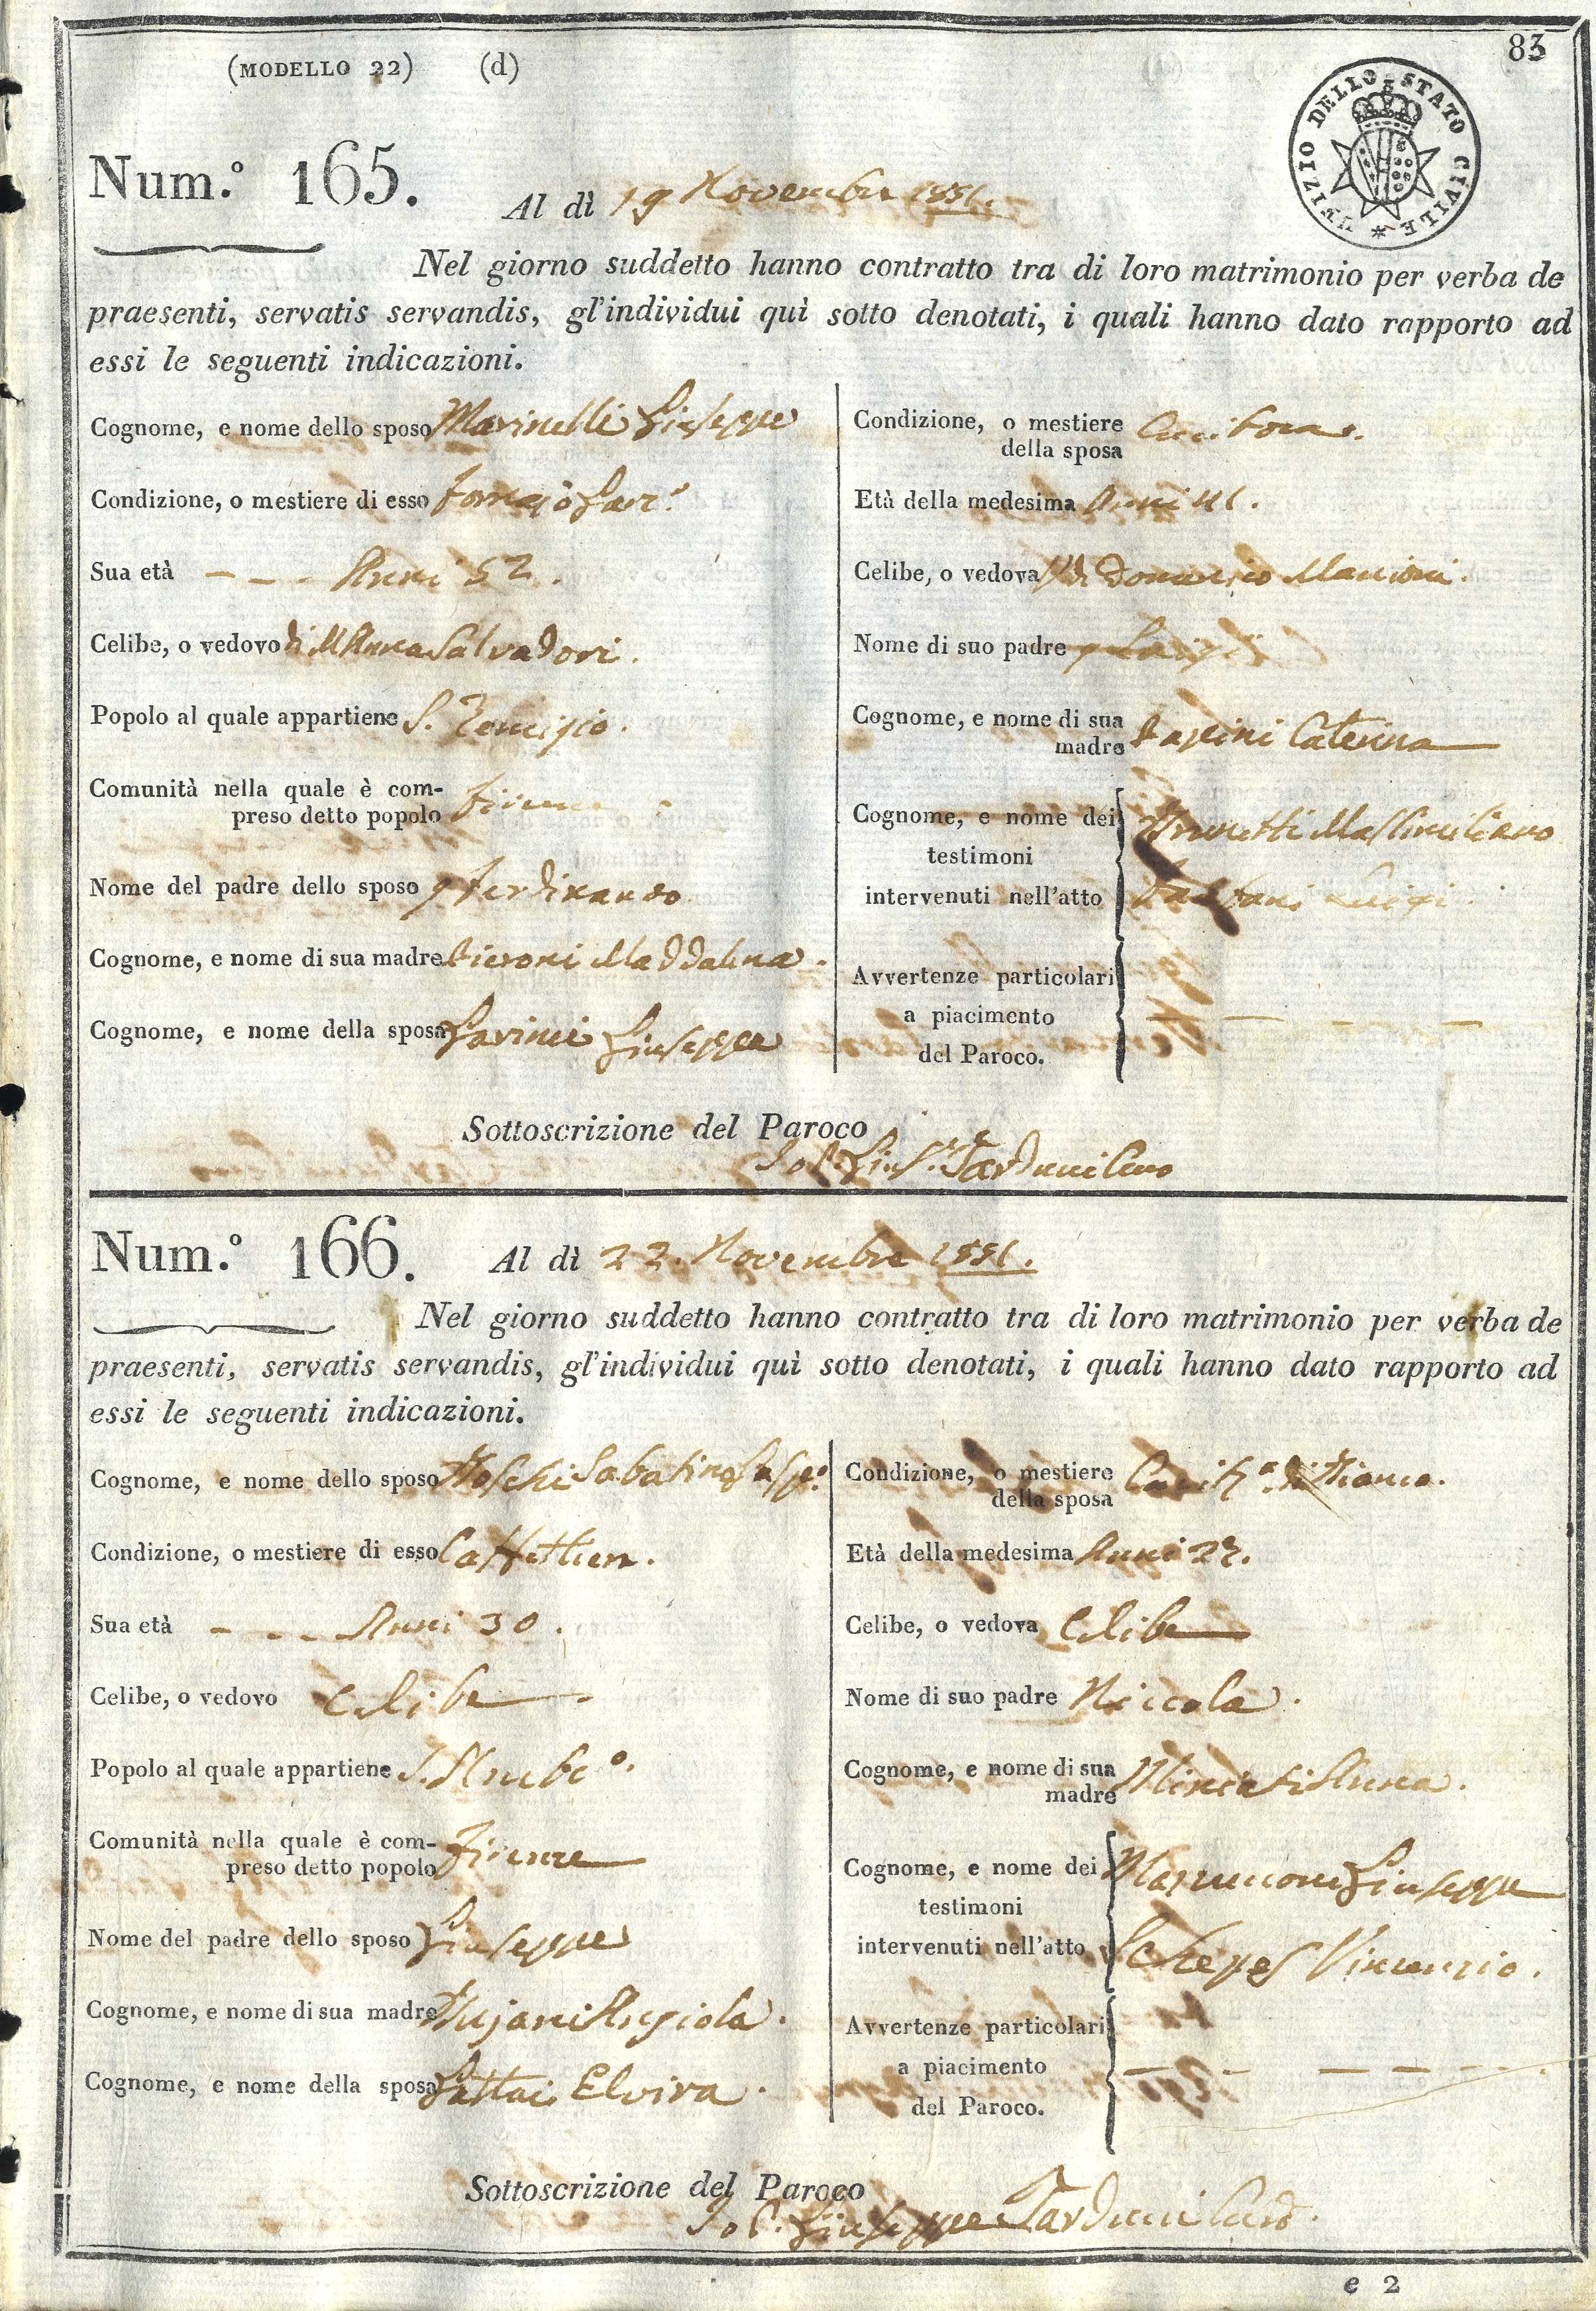 83
(MODELLO 22) (d)
UFIZIO DELLO STATO CIVILE *
Num.º 165.
Al dì 19 Novembre 1851.
Nel giorno suddetto hanno contratto tra di loro matrimonio per verba de
praesenti, servatis servandis, gl'individui quì sotto denotati, i quali hanno dato rapporto ad
essi le seguenti indicazioni.
Cognome, e nome dello sposo Marinelli Giuseppe
Condizione, o mestiere di esso
Sua età - - - Anni 52.
Celibe, o vedovo di M Anna Salvadori.
Popolo al quale appartiene S. Remigio.
Comunità nella quale è com-
preso detto popolo Firenze
Nome del padre dello sposo q Ferdinando
Cognome, e nome di sua madre Pieroni Maddalena.
Cognome, e nome della sposa Giuseppa
Condizione, o mestiere
della sposa
Età della medesima Anni 41.
Celibe, o vedova Vª di Domenico Mancioni.
Nome di suo padre q Luigi
Cognome, e nome di sua
madre Papini Caterina
Cognome, e nome dei
Brunetti Massimiliano
testimoni
intervenuti nell'atto Luigi
Avvertenze particolari
a piacimento
del Paroco.
- - - -
Sottoscrizione del Paroco
Giusᵉ Tarduni Curo
Num.º 166.
Al dì 22. Novembre 1851.
Nel giorno suddetto hanno contratto tra di loro matrimonio per verba de
praesenti, servatis servandis, gl'individui quì sotto denotati, i quali hanno dato rapporto ad
essi le seguenti indicazioni.
Cognome, e nome dello sposo Boschi Sabatino Gaspº
Condizione, o mestiere di esso Caffettiere.
Sua età - - - Anni 30.
Celibe, o vedovo Celibe
Popolo al quale appartiene S. Ambº.
Comunità nella quale è com-
preso detto popolo Firenze
Nome del padre dello sposo Giuseppe
Cognome, e nome di sua madre Bujani Angiola.
Cognome, e nome della sposa Gattai Elvira.
Condizione, o mestiere
della sposa Cucitª. di Bianco.
Età della medesima Anni 22.
Celibe, o vedova Celibe
Nome di suo padre Niccola.
Cognome, e nome di sua
madre Miniati Anna.
Cognome, e nome dei
Giuseppe
testimoni
intervenuti nell'atto Schepes Vincenzio.
Avvertenze particolari
a piacimento
del Paroco.
- - - - -
Sottoscrizione del Paroco
Giuseppe Tarduni Curo.
e 2